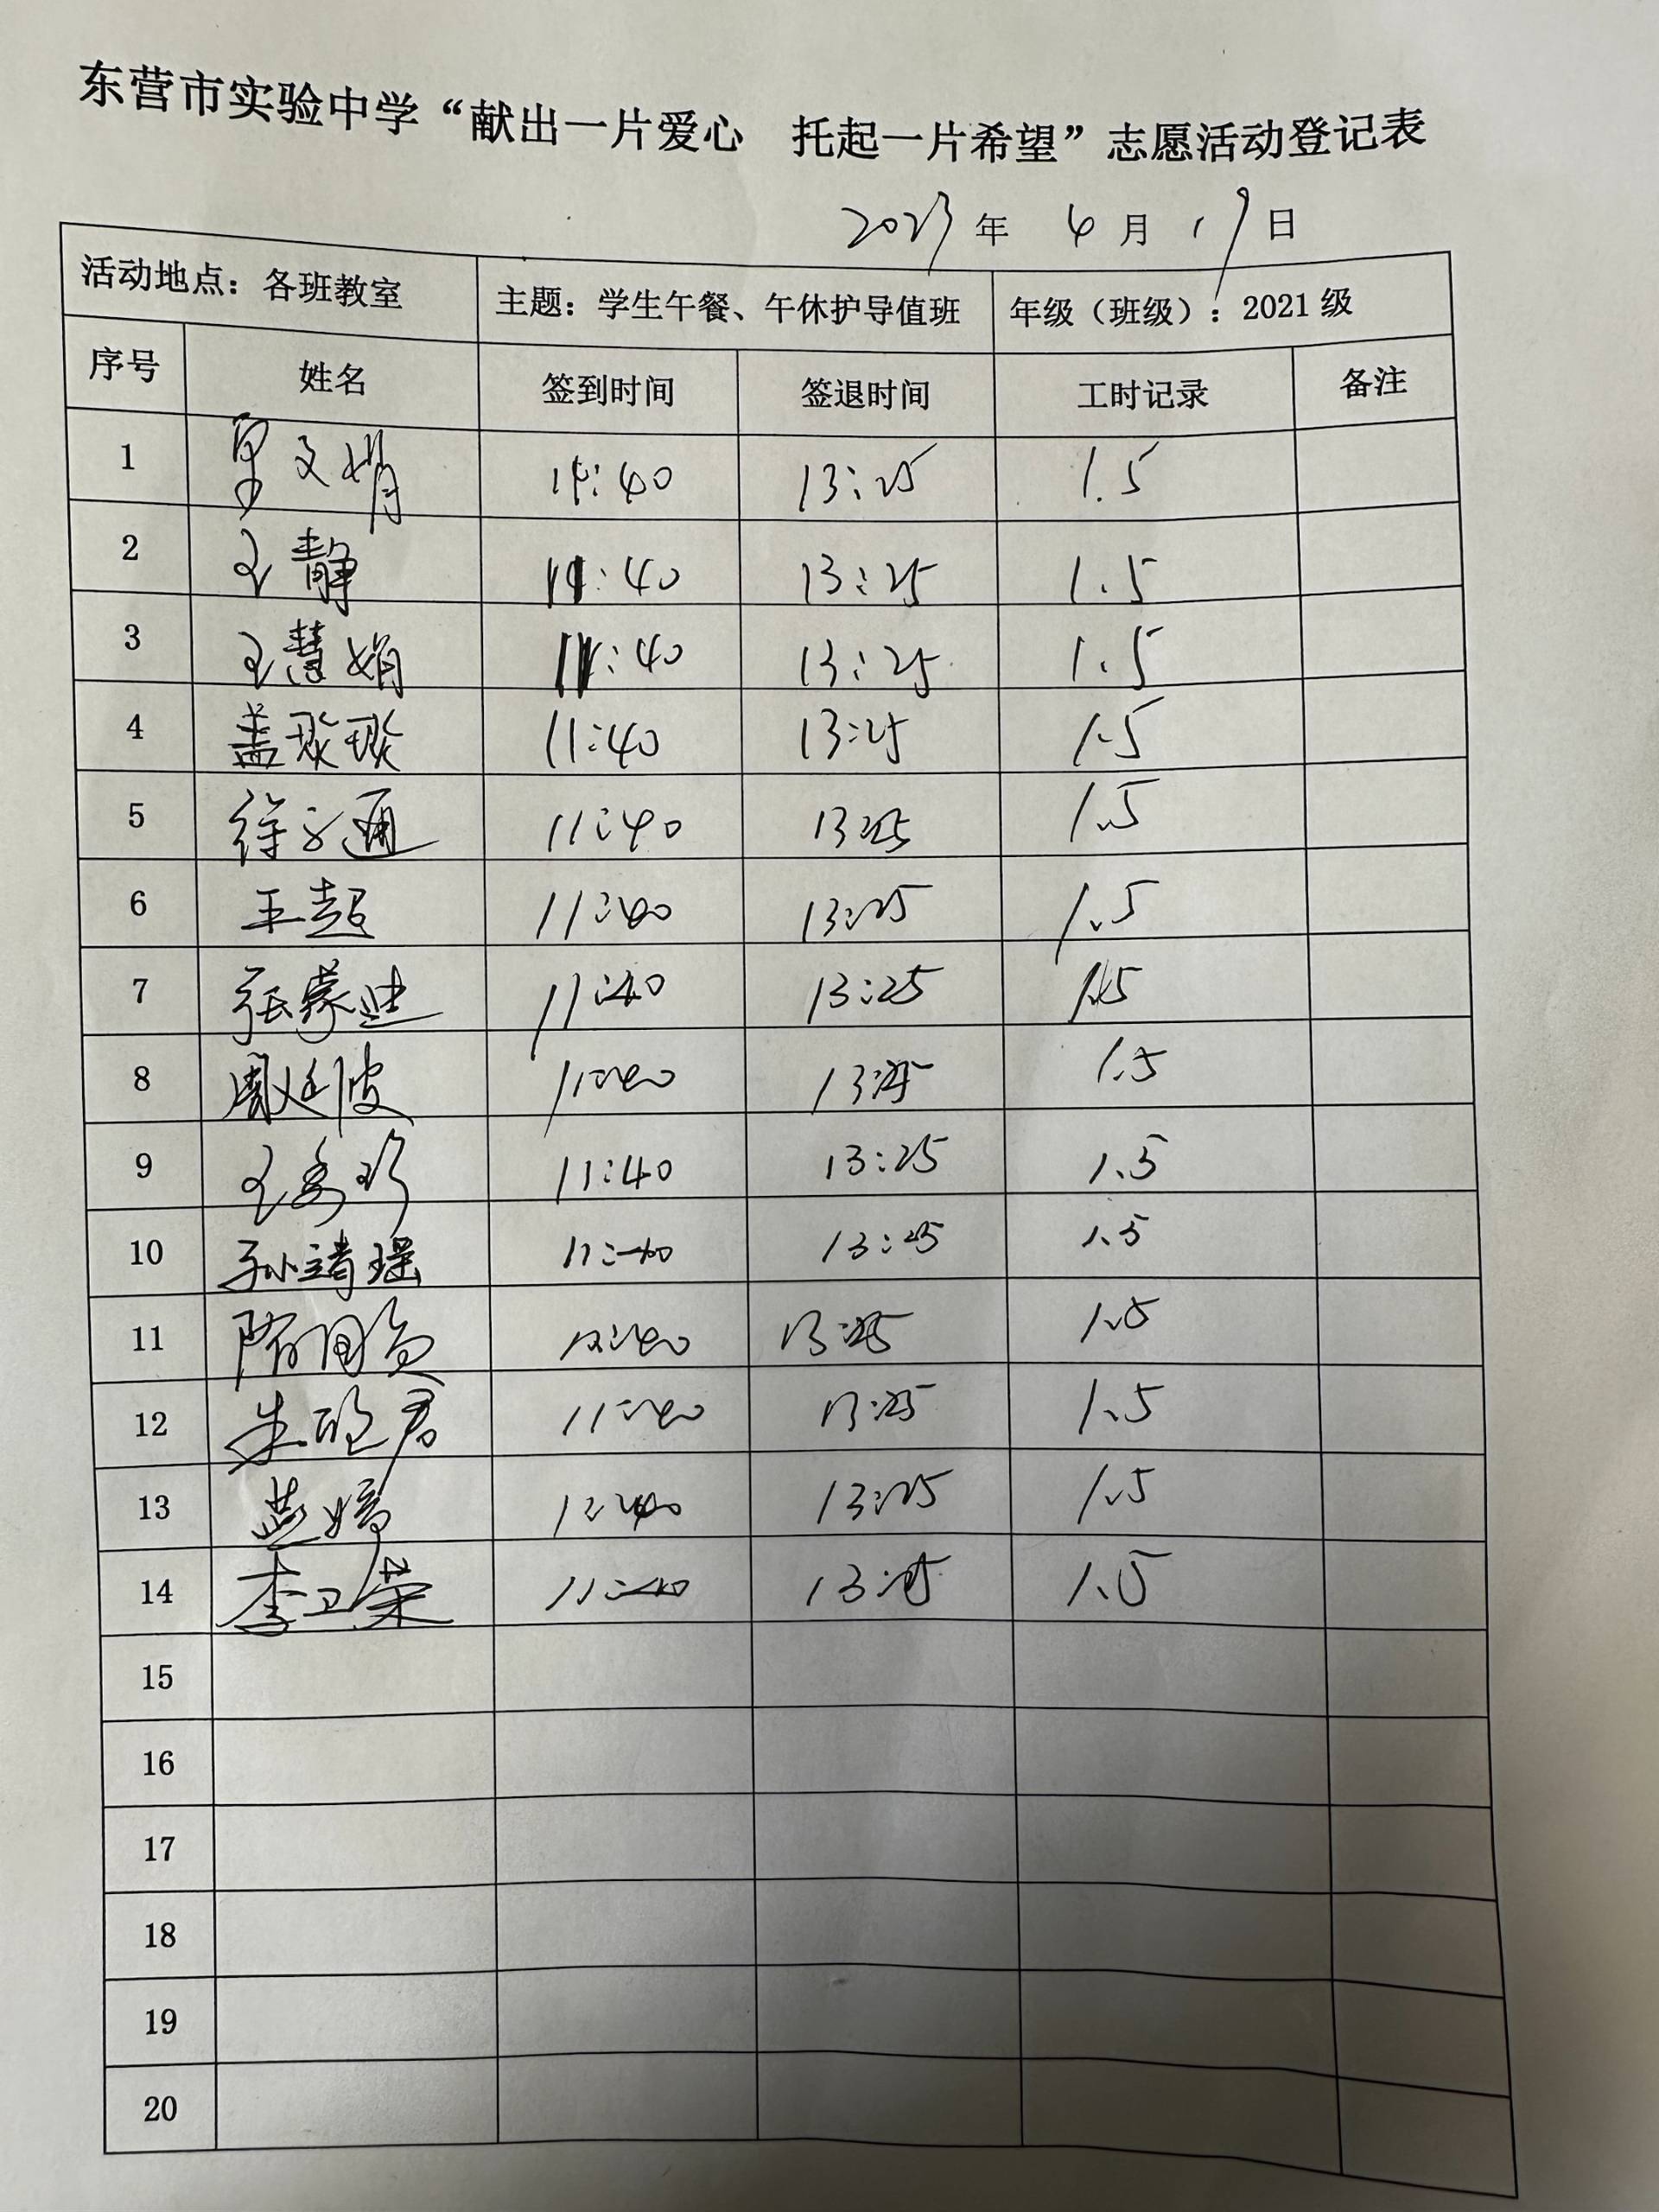 东营市实验中学“献出一片爱心 托起一片希望”志愿活动登记表
2023年 4月 19日
活动地点：各班教室 主题：学生午餐、午休护导值班 年级（班级）：2021级
序号 姓名 签到时间 签退时间 工时记录 备注
1 文娟 11:40 13:25 1.5
2 王静 11:40 13:25 1.5
3 王慧娟 11:40 13:25 1.5
4 盖琰琰 11:40 13:25 1.5
5 徐 通 11:40 13:25 1.5
6 王超 11:40 13:25 1.5
7 张蒙迪 11:40 13:25 1.5
8 周廷波 11:40 13:25 1.5
9 王秀珍 11:40 13:25 1.5
10 孙靖瑶 11:40 13:25 1.5
11 隋国 13:25 1.5
12 朱 君 11:40 13:25 1.5
13 婷 13:25 1.5
14 李卫荣 11:40 13:25 1.5
15
16
17
18
19
20